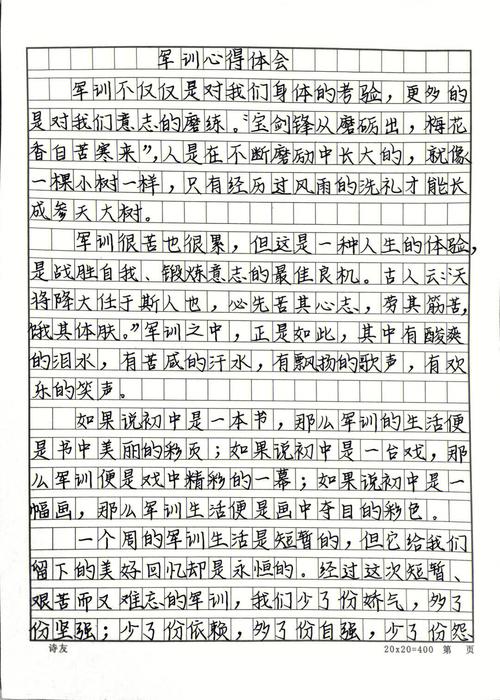 军训心得体会
军训不仅仅是对我们身体的考验,更多的
是对我们意志的磨练。“宝剑锋从磨砺出,梅花
香自苦寒来”,人是在不断磨励中长大的,就像
一棵小树一样,只有经历过风雨的洗礼才能长
成参天大树。
军训很苦也很累,但这是一种人生的体验,
是战胜自我、锻炼意志的最佳良机。古人云:“天
将降大任于斯人也,必先苦其心志,劳其筋苦,
饿其体肤。”军训之中,正是如此,其中有酸爽
的泪水,有苦咸的汗水,有飘扬的歌声,有欢
乐的笑声。
如果说初中是一本书,那么军训的生活便
是书中美丽的彩页;如果说初中是一台戏,那
么军训便是戏中精彩的一幕;如果说初中是一
幅画,那么军训生活便是画中夺目的彩色。
一个周的军训生活是短暂的,但它给我们
留下的美好回忆却是永恒的。经过这次短暂、
艰苦而又难忘的军训,我们少了份娇气,多了
份坚强;少了份依赖,多了份自强,少了份怨
诗友 20x20=400 第 页